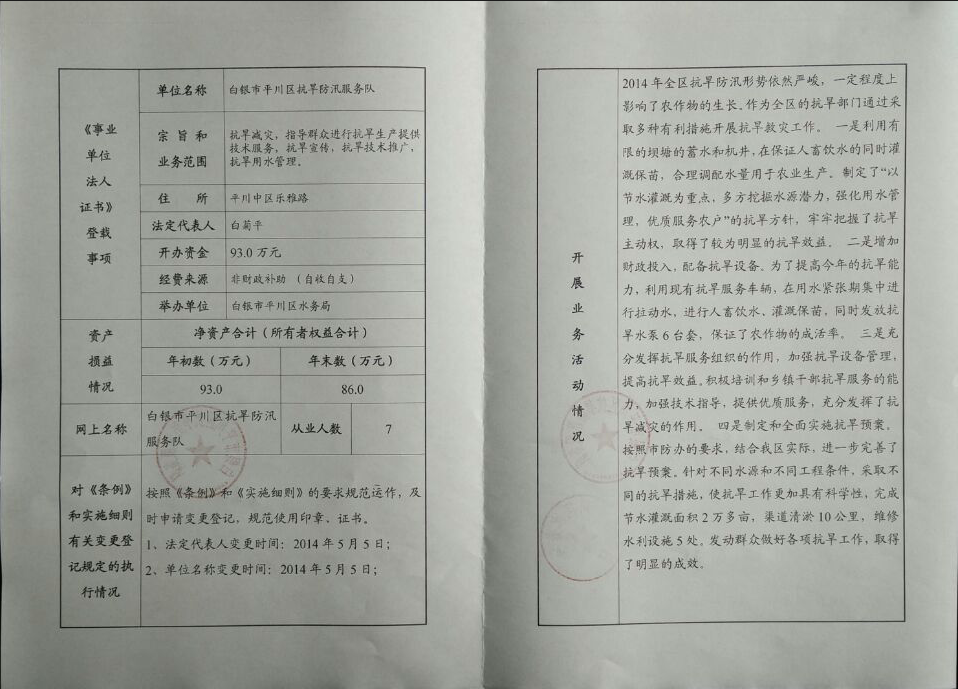 《事业
单位
法人
证书》
登载
事项
单位名称
白银市平川区抗旱防汛服务队
宗旨和
业务范围
抗旱减灾，指导群众进行抗旱生产提供
技术服务，抗旱宣传，抗旱技术推广，
抗旱用水管理。
住 所
平川中区乐雅路
法定代表人
白菊平
开办资金
93.0 万元
经费来源
非财政补助 （自收自支）
举办单位
白银市平川区水务局
资产
损益
情况
净资产合计（所有者权益合计）
年初数（万元）
年末数（万元）
93.0
86.0
网上名称
白银市平川区抗旱防汛
服务队
从业人数
7
对《条例》
和实施细则
有关变更登
记规定的执
行情况
按照《条例》和《实施细则》的要求规范运作，及
时申请变更登记，规范使用印章、证书。
1、法定代表人变更时间：2014 年 5 月 5 日；
2、单位名称变更时间：2014 年 5 月 5 日；
开
展
业
务
活
动
情
况
2014 年全区抗旱防汛形势依然严峻，一定程度上
影响了农作物的生长。作为全区的抗旱部门通过采
取多种有利措施开展抗旱救灾工作。 一是利用有
限的坝塘的蓄水和机井，在保证人畜饮水的同时灌
溉保苗，合理调配水量用于农业生产。制定了“以
节水灌溉为重点，多方挖掘水源潜力，强化用水管
理，优质服务农户”的抗旱方针，牢牢把握了抗旱
主动权，取得了较为明显的抗旱效益。 二是增加
财政投入，配备抗旱设备。为了提高今年的抗旱能
力，利用现有抗旱服务车辆，在用水紧张期集中进
行拉动水、进行人畜饮水、灌溉保苗，同时发放抗
旱水泵 6 台套，保证了农作物的成活率。 三是充
分发挥抗旱服务组织的作用，加强抗旱设备管理，
提高抗旱效益。积极培训和乡镇干部抗旱服务的能
力，加强技术指导，提供优质服务，充分发挥了抗
旱减灾的作用。 四是制定和全面实施抗旱预案。
按照市防办的要求，结合我区实际，进一步完善了
抗旱预案。针对不同水源和不同工程条件，采取不
同的抗旱措施，使抗旱工作更加具有科学性，完成
节水灌溉面积 2 万多亩，渠道清淤 10 公里，维修
水利设施 5 处。发动群众做好各项抗旱工作，取得
了明显的成效。